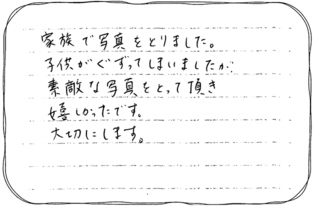 家族で写真をとりました。
子供がぐずってしまいましたが
素敵な写真をとって頂き
嬉しかったです。
大切にします。